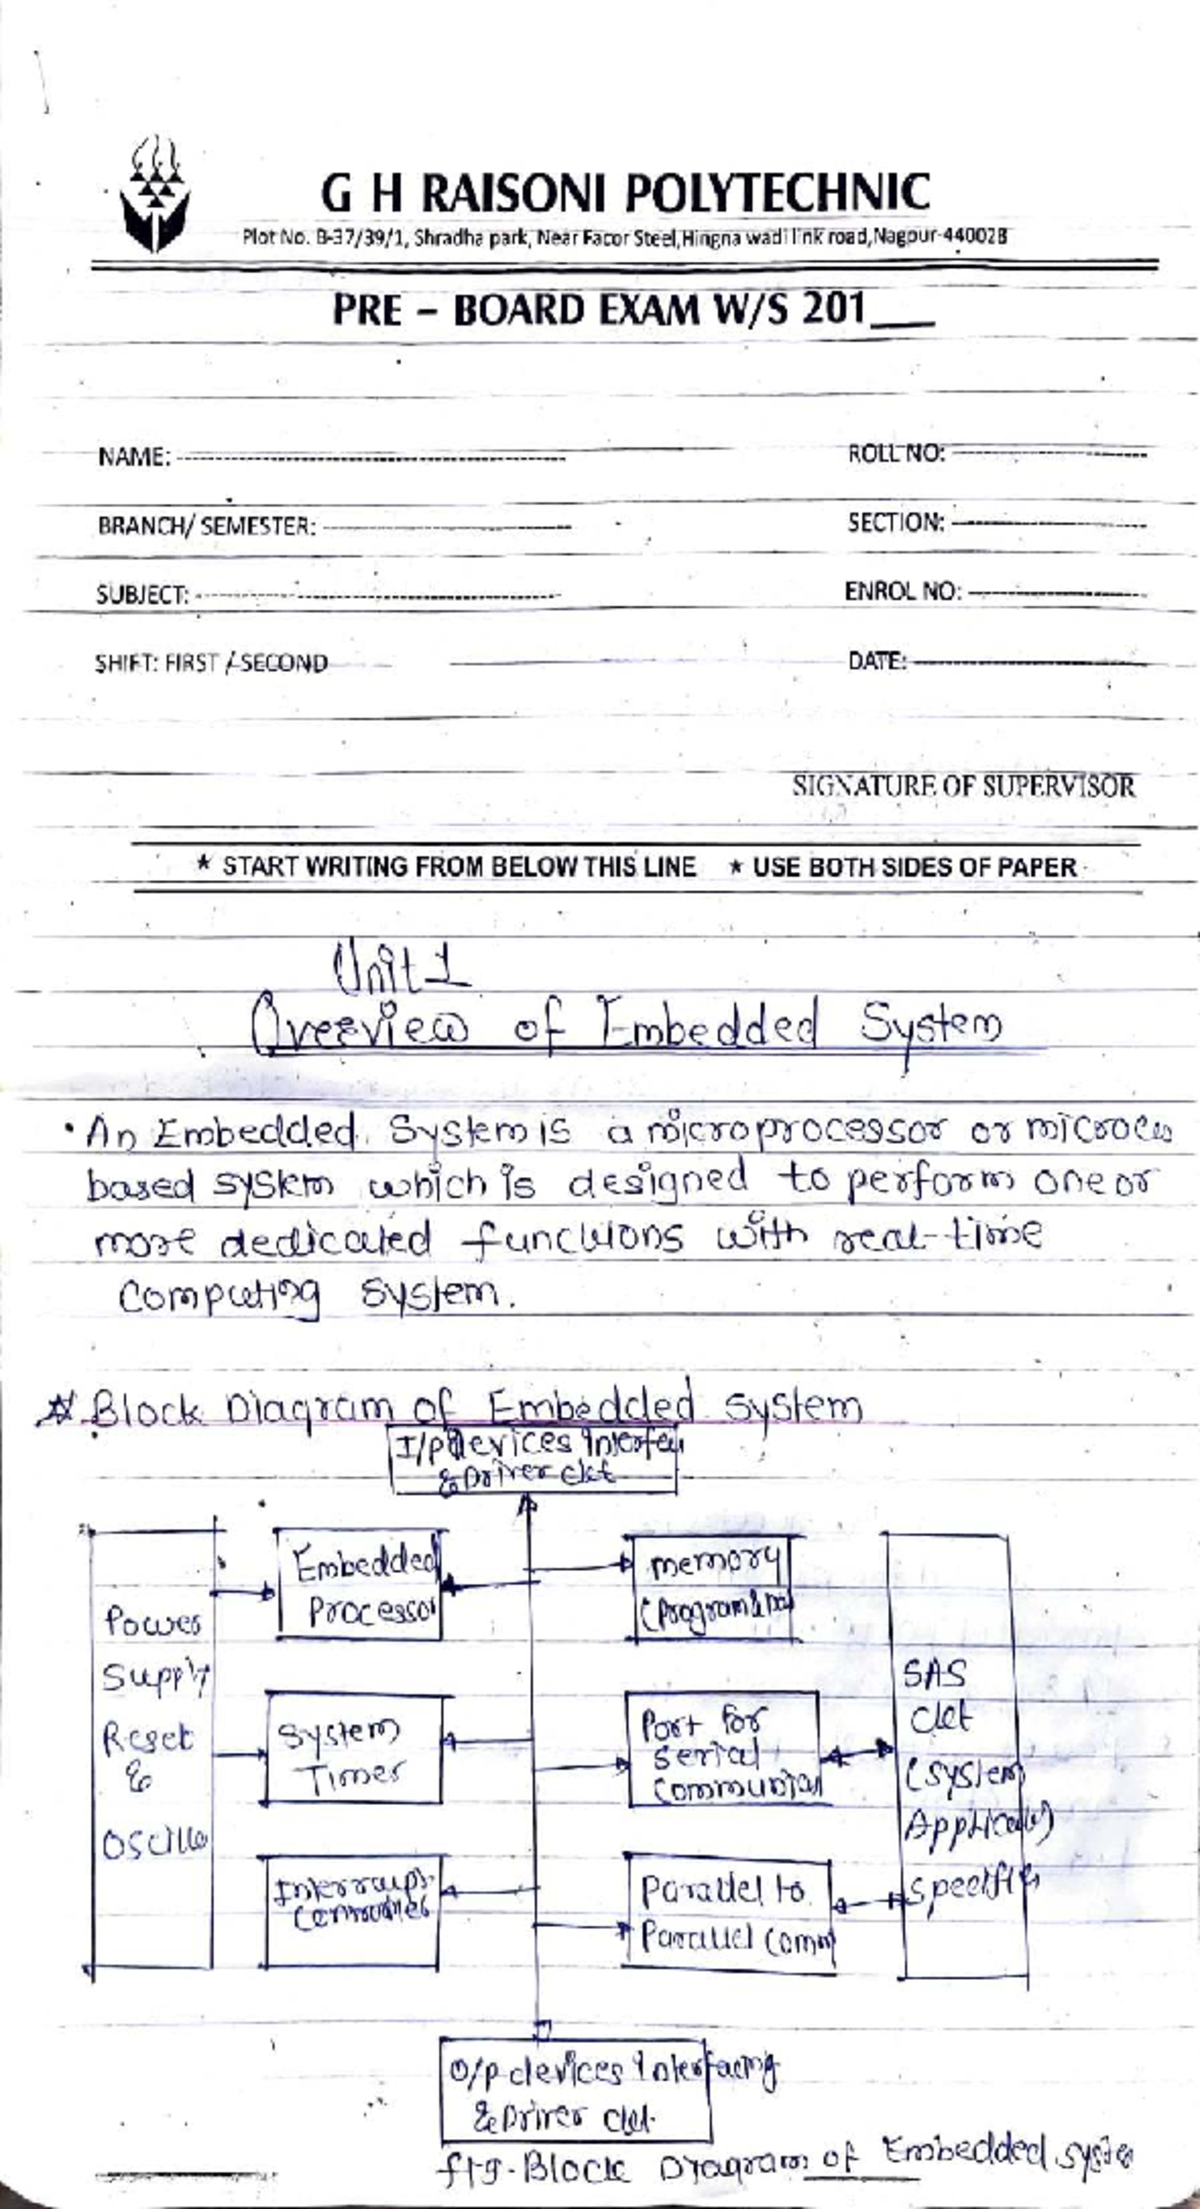 G H RAISONI POLYTECHNIC
Plot No. B-37/39/1, Shradha park, Near Facor Steel, Hingna wadi link road, Nagpur-440028
PRE – BOARD EXAM W/S 201___
NAME: ROLL NO:
BRANCH/ SEMESTER: SECTION:
SUBJECT: ENROL NO:
SHIFT: FIRST / SECOND DATE:
SIGNATURE OF SUPERVISOR
★ START WRITING FROM BELOW THIS LINE ★ USE BOTH SIDES OF PAPER
Unit 1
Overview of Embedded System
• An Embedded System is a microprocessor or
based system which is designed to perform one or
more dedicated functions with real-time
computing system.
Block Diagram of Embedded System
I/p devices
& Driver ckt
Embedded
Processor
memory
(Program &
Power
Supply
Reset
&
System
Timer
Port for
serial
SAS
ckt
(System
Parallel to
Parallel Comm
O/p devices Interfacing
& Driver ckt.
fig. Block Diagram of Embedded